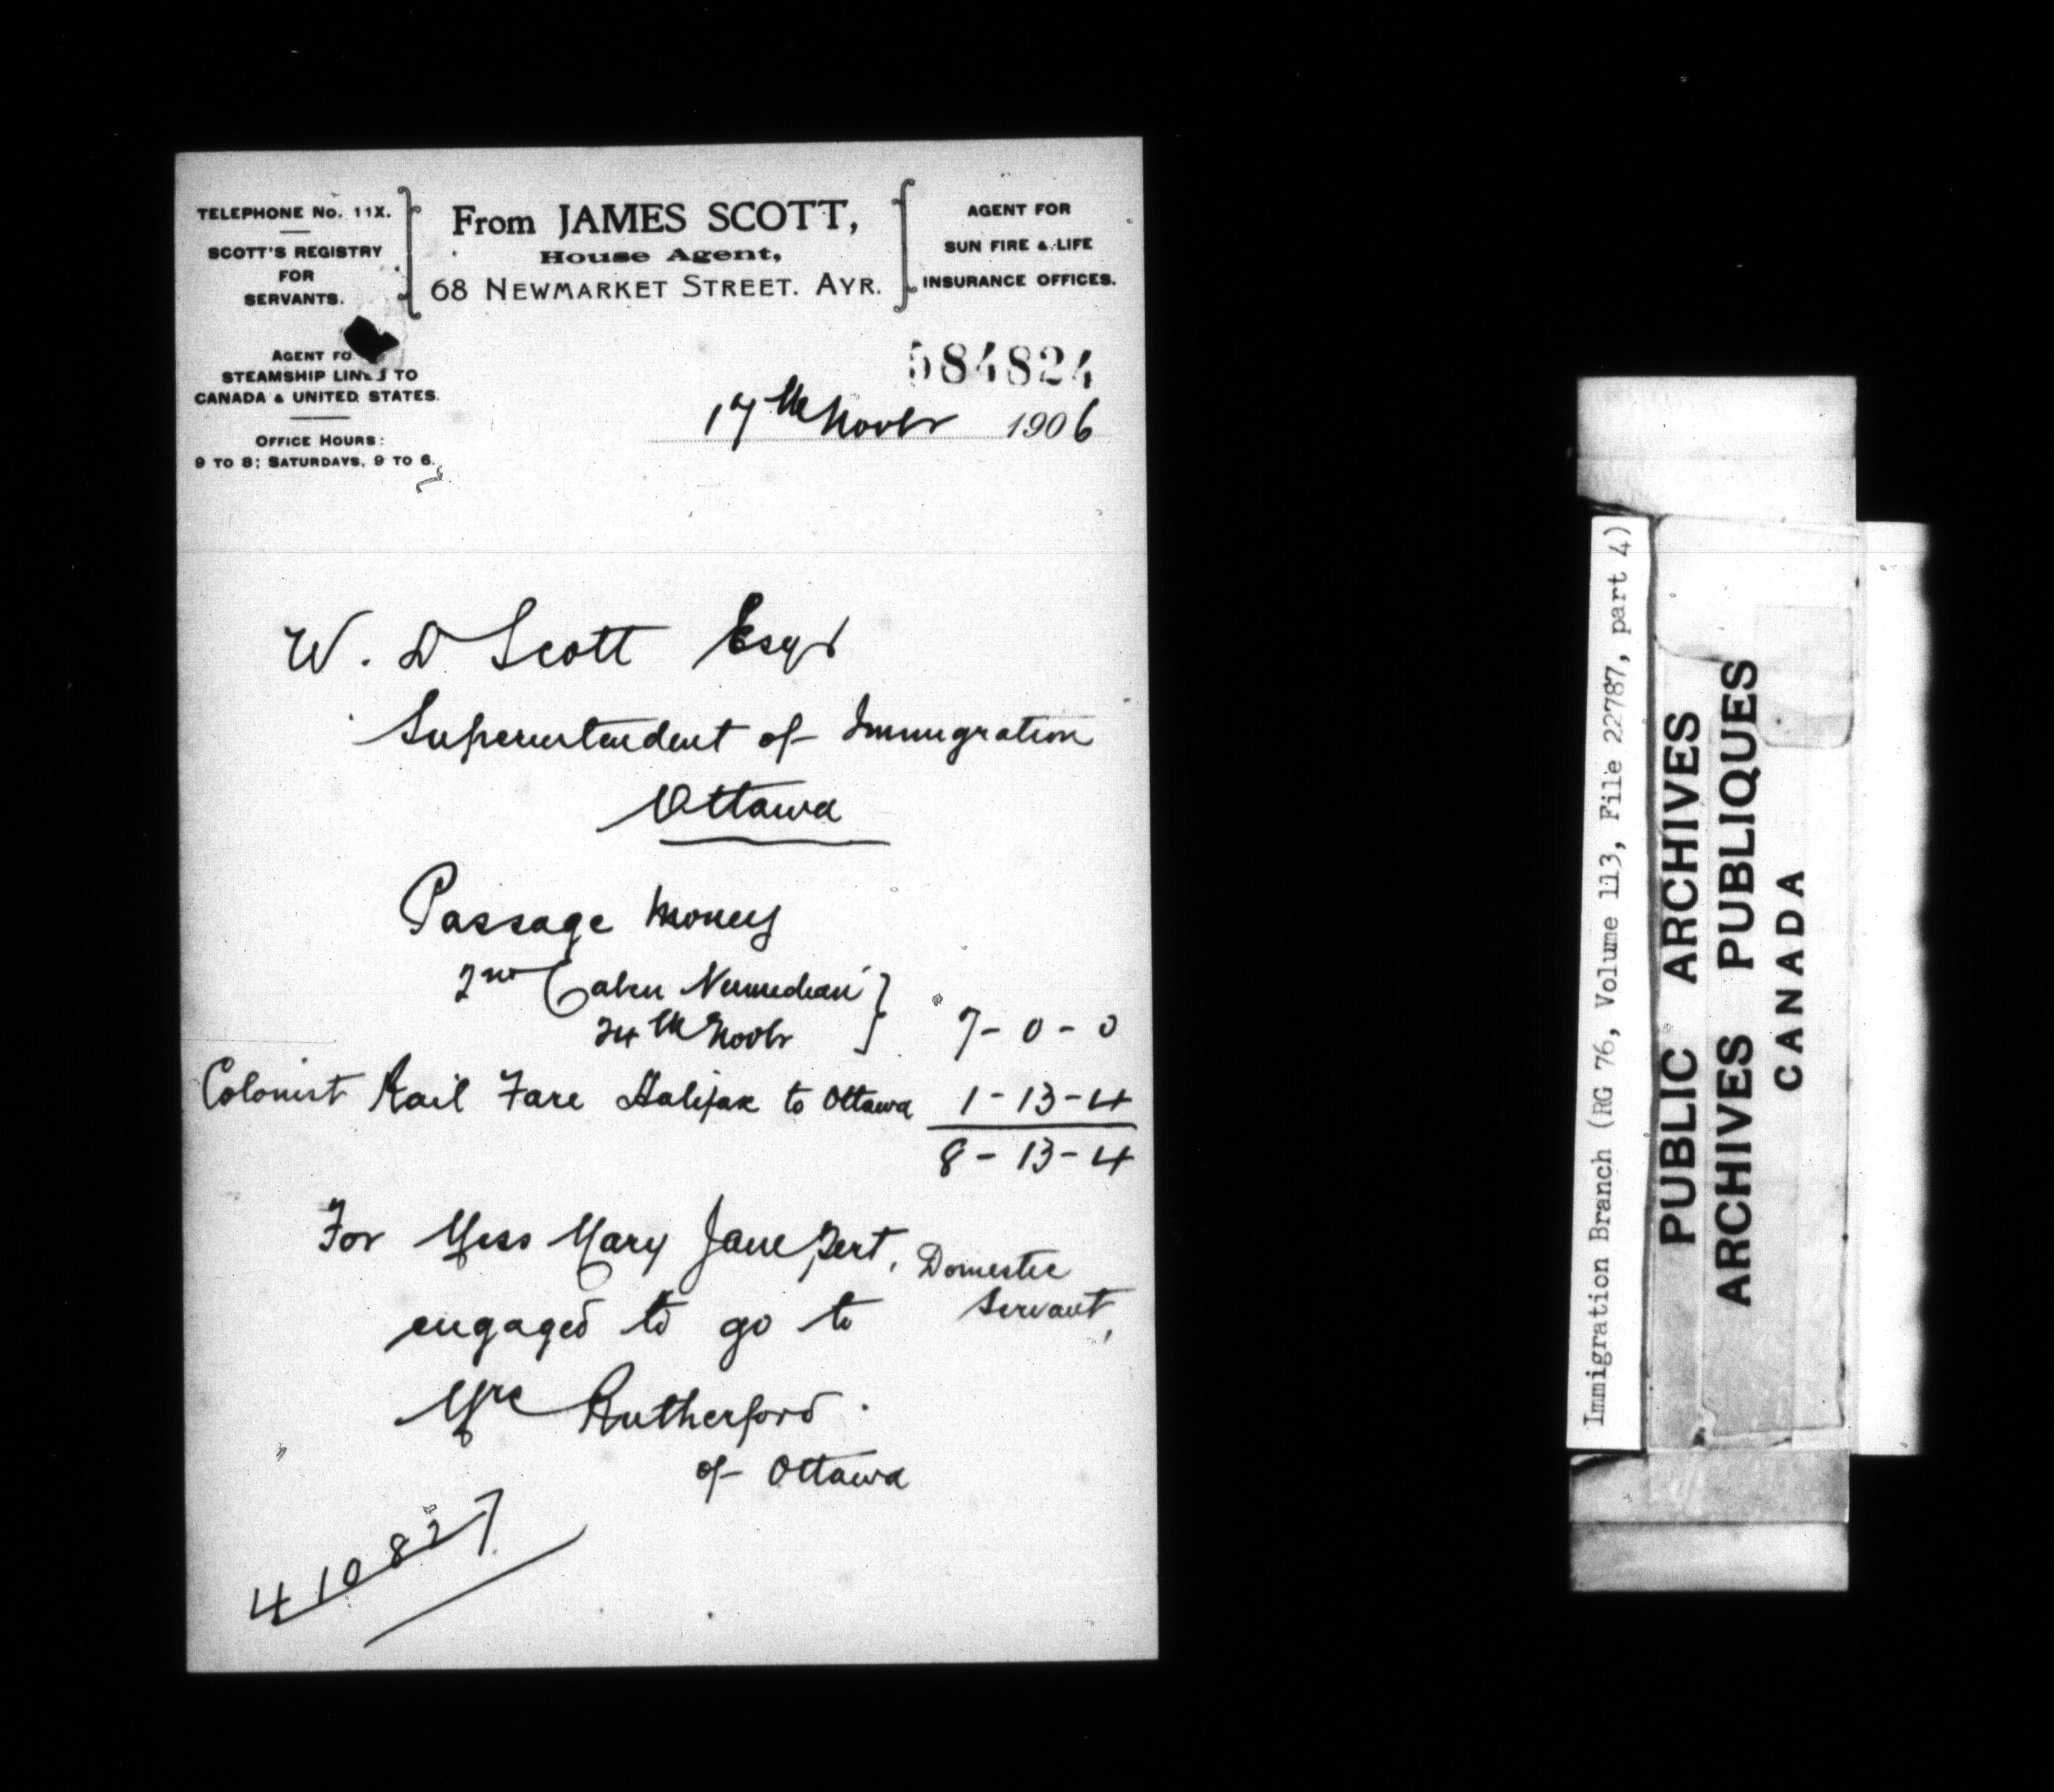 TELEPHONE No. 11X.
SCOTT'S REGISTRY
FOR
SERVANTS.
From JAMES SCOTT,
House Agent,
68 NEWMARKET STREET. AYR.
AGENT FOR
SUN FIRE & LIFE
INSURANCE OFFICES.
AGENT FO
STEAMSHIP LINES TO
CANADA & UNITED STATES.
OFFICE HOURS:
9 TO 8; SATURDAYS, 9 TO 6.
584824
17th Novbr 1906
W. D Scott Esqr
Superintendent of Immigration
Ottawa
Passage Money
2nd Cabin Numidian
24th Novbr } 7-0-0
Colonist Rail Fare Halifax to Ottawa 1-13-4
8-13-4
For Miss Mary Jane , Domestic
Servant,
engaged to go to
Mrs Rutherford.
of Ottawa
410827
Immigration Branch (RG 76, Volume 113, File 22787, part 4)
PUBLIC ARCHIVES
ARCHIVES PUBLIQUES
CANADA